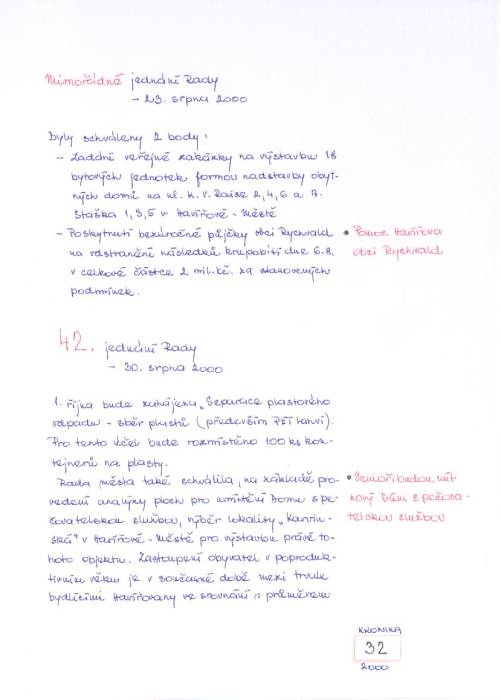 Mimořádné jednání Rady
- 23. srpna 2000
Byly schváleny 2 body:
- Zadání veřejné zakázky na výstavbu 18
bytových jednotek formou nadstavby obyt-
ných domů na ul. K. V. Raise 2, 4, 6 a A.
Staška 1, 3, 5 v Havířově - Městě
- Poskytnutí bezúročné půjčky obci Rychvald
na odstranění následků krupobití dne 6.8.
v celkové částce 2 mil. Kč. za stanovených
podmínek.
• Pomoc Havířova
obci Rychvald
42. jednání Rady
- 30. srpna 2000
1. října bude zahájena „Separace plastového
odpadu - sběr plastů (především PET lahví).
Pro tento účel bude rozmístěno 100 ks kon-
tejnerů na plasty.
Rada města také schválila, na základě pro-
vedení analýzy ploch pro umístění Domu s pe-
čovatelskou službou, výběr lokality „Karvin-
ská" v Havířově - Městě pro výstavbu právě to-
hoto objektu. Zastoupení obyvatel v poproduk-
tivním věku je v současné době mezi trvale
bydlícími Havířovany ve srovnání s průměrem
• Senioři budou mít
nový Dům s pečova-
telskou službou
KRONIKA
32
2000